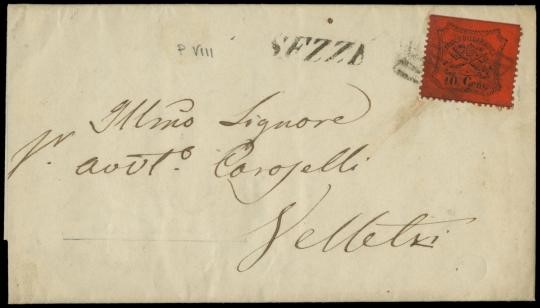 P VIII
SEZZE
10 Cent
Illmo Signore
Sr. avvto. Caroselli
Velletri